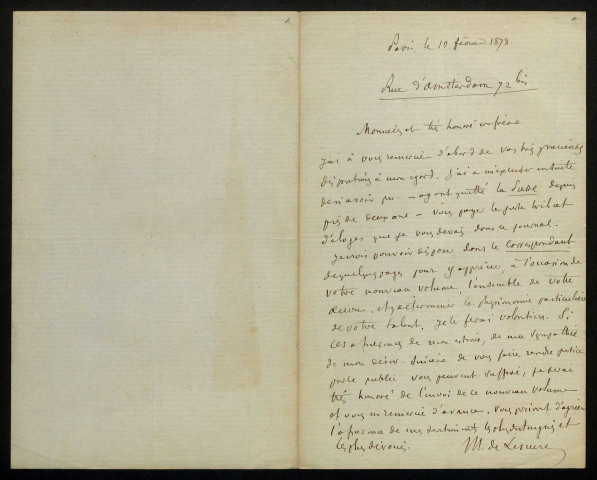 Paris, le 10 février 1878.
Rue d'Amsterdam 72 bis
Monsieur et très honoré confrère
J'ai à vous remercier d'abord de vos très gracieuses
dispositions à mon égard. J'ai à m'excuser ensuite
de n'avoir pu - ayant quitté la depuis
près de deux ans - vous payer le juste tribut
d'éloges que je vous devais dans ce journal.
Je crois pouvoir disposer dans le Correspondant
de quelques pages pour y apprécier, à l'occasion de
votre nouveau volume, l'ensemble de votre
œuvre, et y déterminer la physionomie particulière
de votre talent. Je le ferai volontiers. Si
ces assurances de mon estime, de ma sympathie
de mon désir sincère de vous faire rendre justice
par le public vous peuvent suffire, je serai
très honoré de l'envoi de ce nouveau volume
et vous en remercie d'avance, vous priant d'agréer
l'assurance de mes sentiments les plus distingués et
les plus dévoués.
M. de Lescure